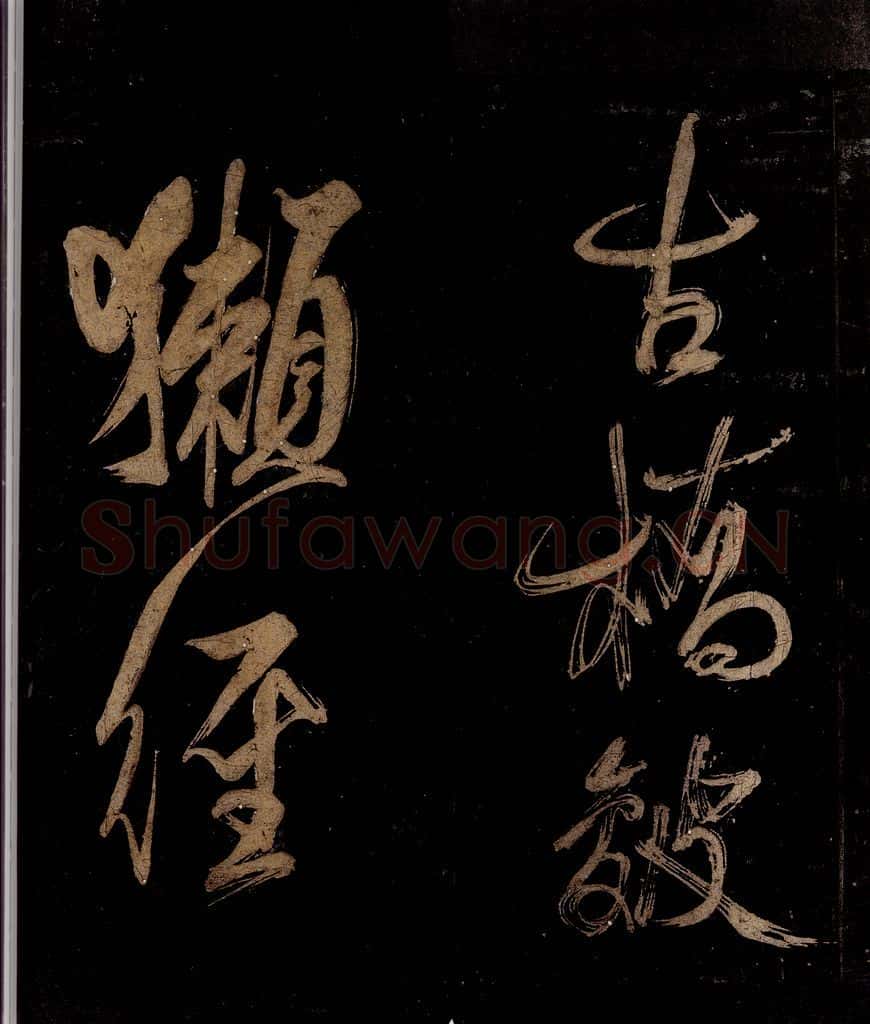 古橋敧
獺徑
Shufawang.CN